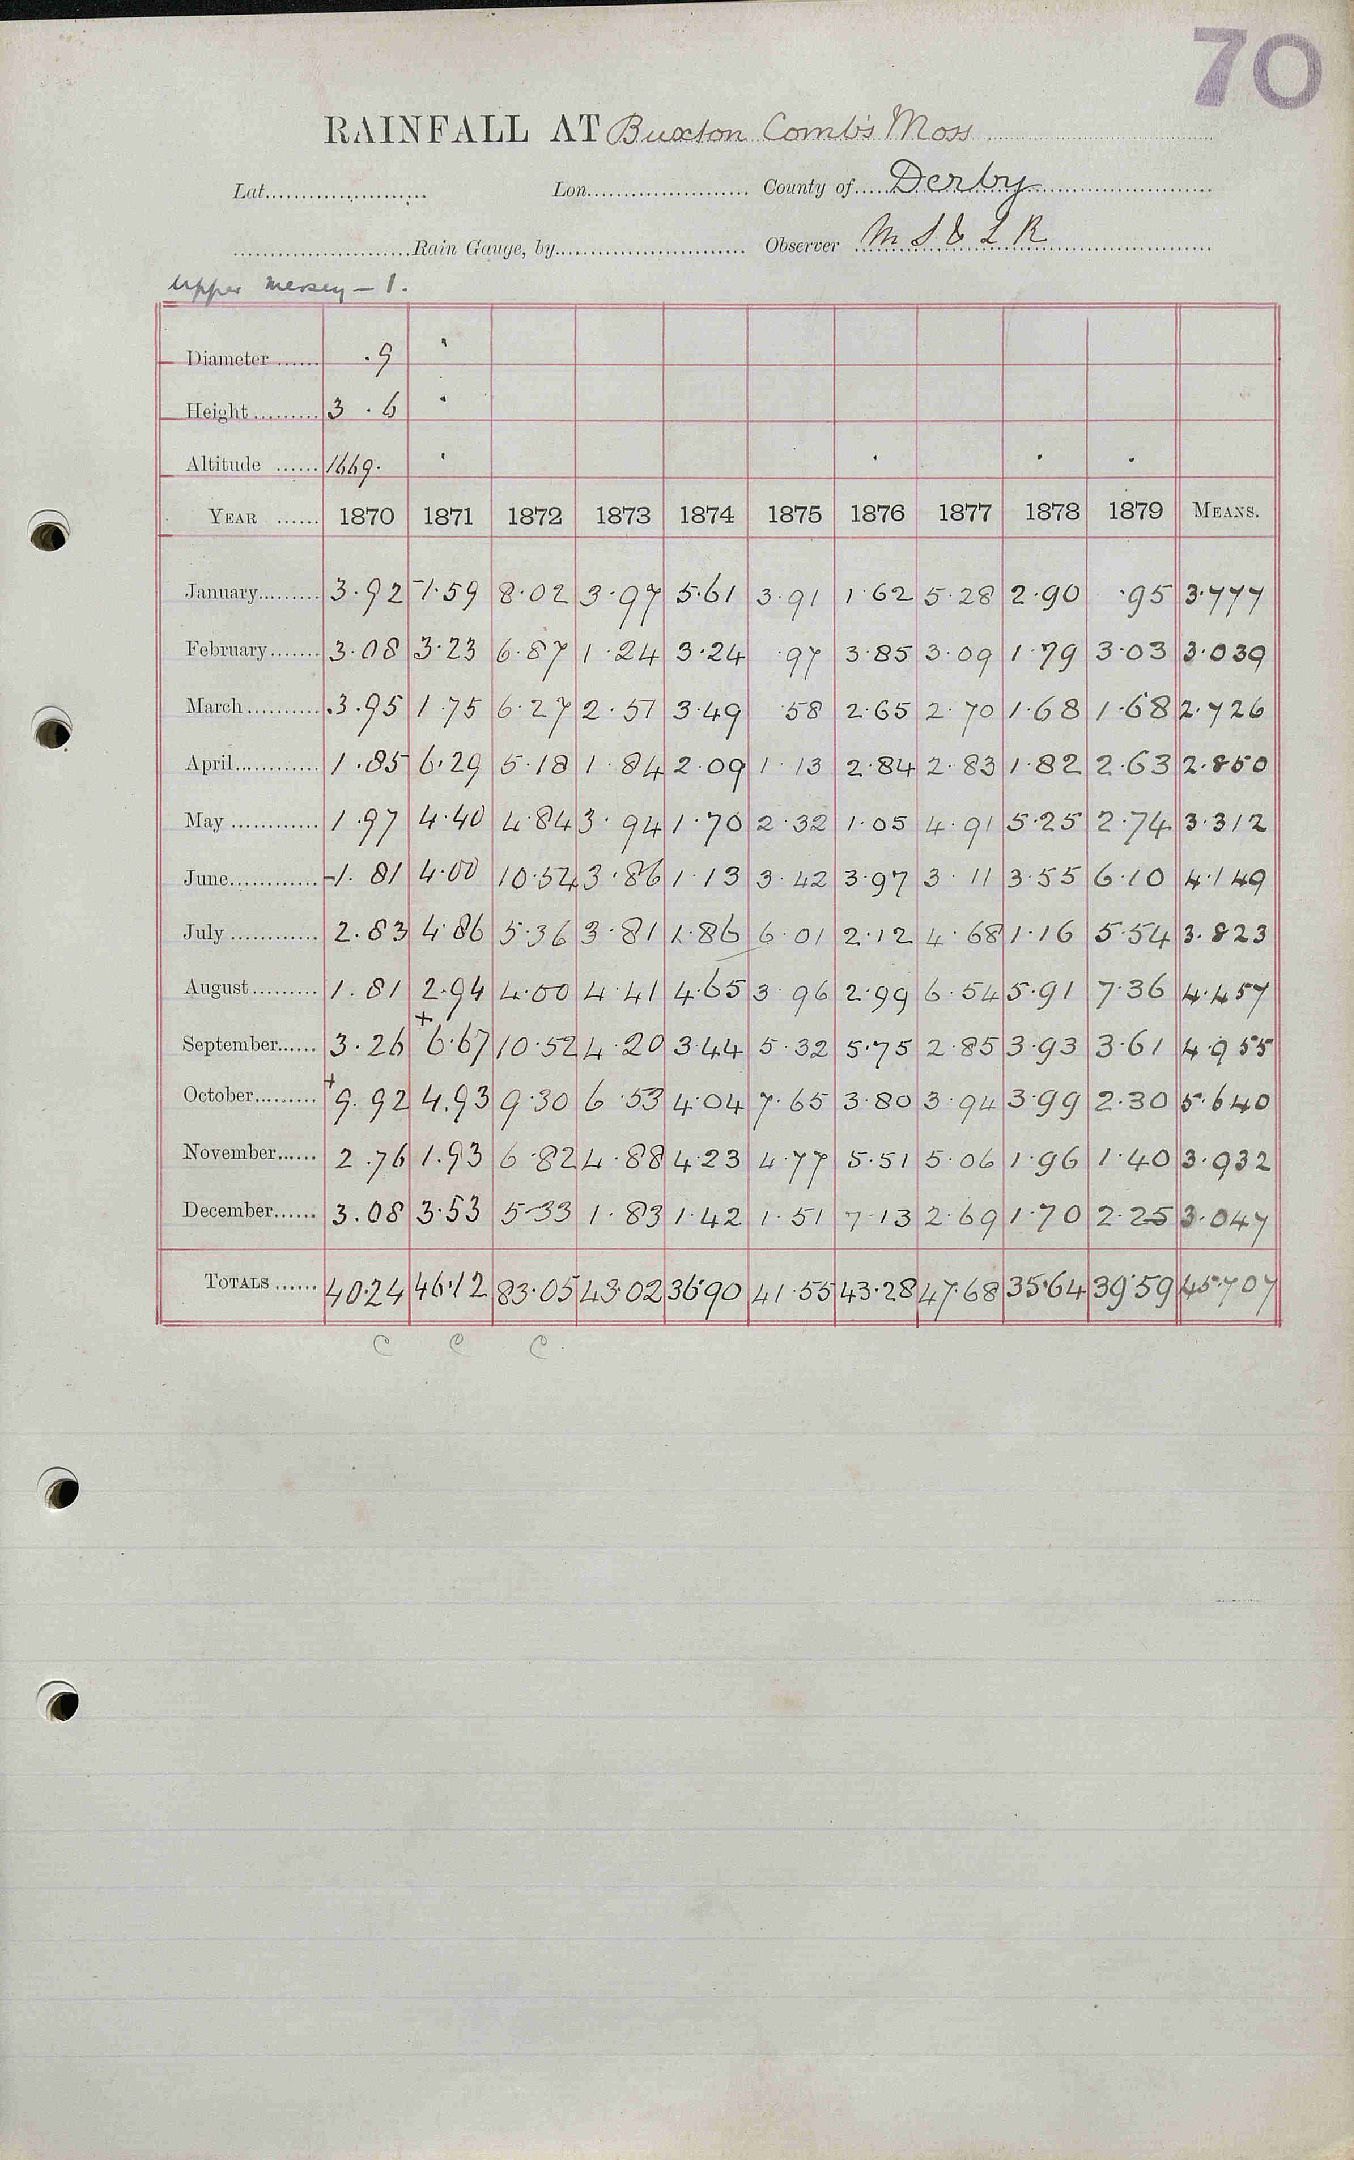 70
RAINFALL AT Buxton Combs Moss
Lat. Lon. County of Derby
Rain Gauge, by Observer M S & L R
Upper Mersey - 1.
Diameter ...... .9
Height ......... 3 . 6
Altitude ...... 1669.
YEAR ...... 1870 1871 1872 1873 1874 1875 1876 1877 1878 1879 MEANS.
January......... 3.92 1.59 8.02 3.97 5.61 3.91 1.62 5.28 2.90 .95 3.777
February....... 3.08 3.23 6.87 1.24 3.24 .97 3.85 3.09 1.79 3.03 3.039
March.......... 3.95 1.75 6.27 2.51 3.49 .58 2.65 2.70 1.68 1.68 2.726
April............ 1.85 6.29 5.18 1.84 2.09 1.13 2.84 2.83 1.82 2.63 2.850
May ............ 1.97 4.40 4.84 3.94 1.70 2.32 1.05 4.91 5.25 2.74 3.312
June............ 1.81 4.00 10.54 3.86 1.13 3.42 3.97 3.11 3.55 6.10 4.149
July ............ 2.83 4.86 5.36 3.81 1.86 6.01 2.12 4.68 1.16 5.54 3.823
August......... 1.81 2.94 4.00 4.41 4.65 3.96 2.99 6.54 5.91 7.36 4.457
September...... 3.26 +6.67 10.52 4.20 3.44 5.32 5.75 2.85 3.93 3.61 4.955
October......... +9.92 4.93 9.30 6.53 4.04 7.65 3.80 3.94 3.99 2.30 5.640
November...... 2.76 1.93 6.82 4.88 4.23 4.77 5.51 5.06 1.96 1.40 3.932
December...... 3.08 3.53 5.33 1.83 1.42 1.51 7.13 2.69 1.70 2.25 3.047
TOTALS ...... 40.24 46.12 83.05 43.02 36.90 41.55 43.28 47.68 35.64 39.59 45.707
C C C.